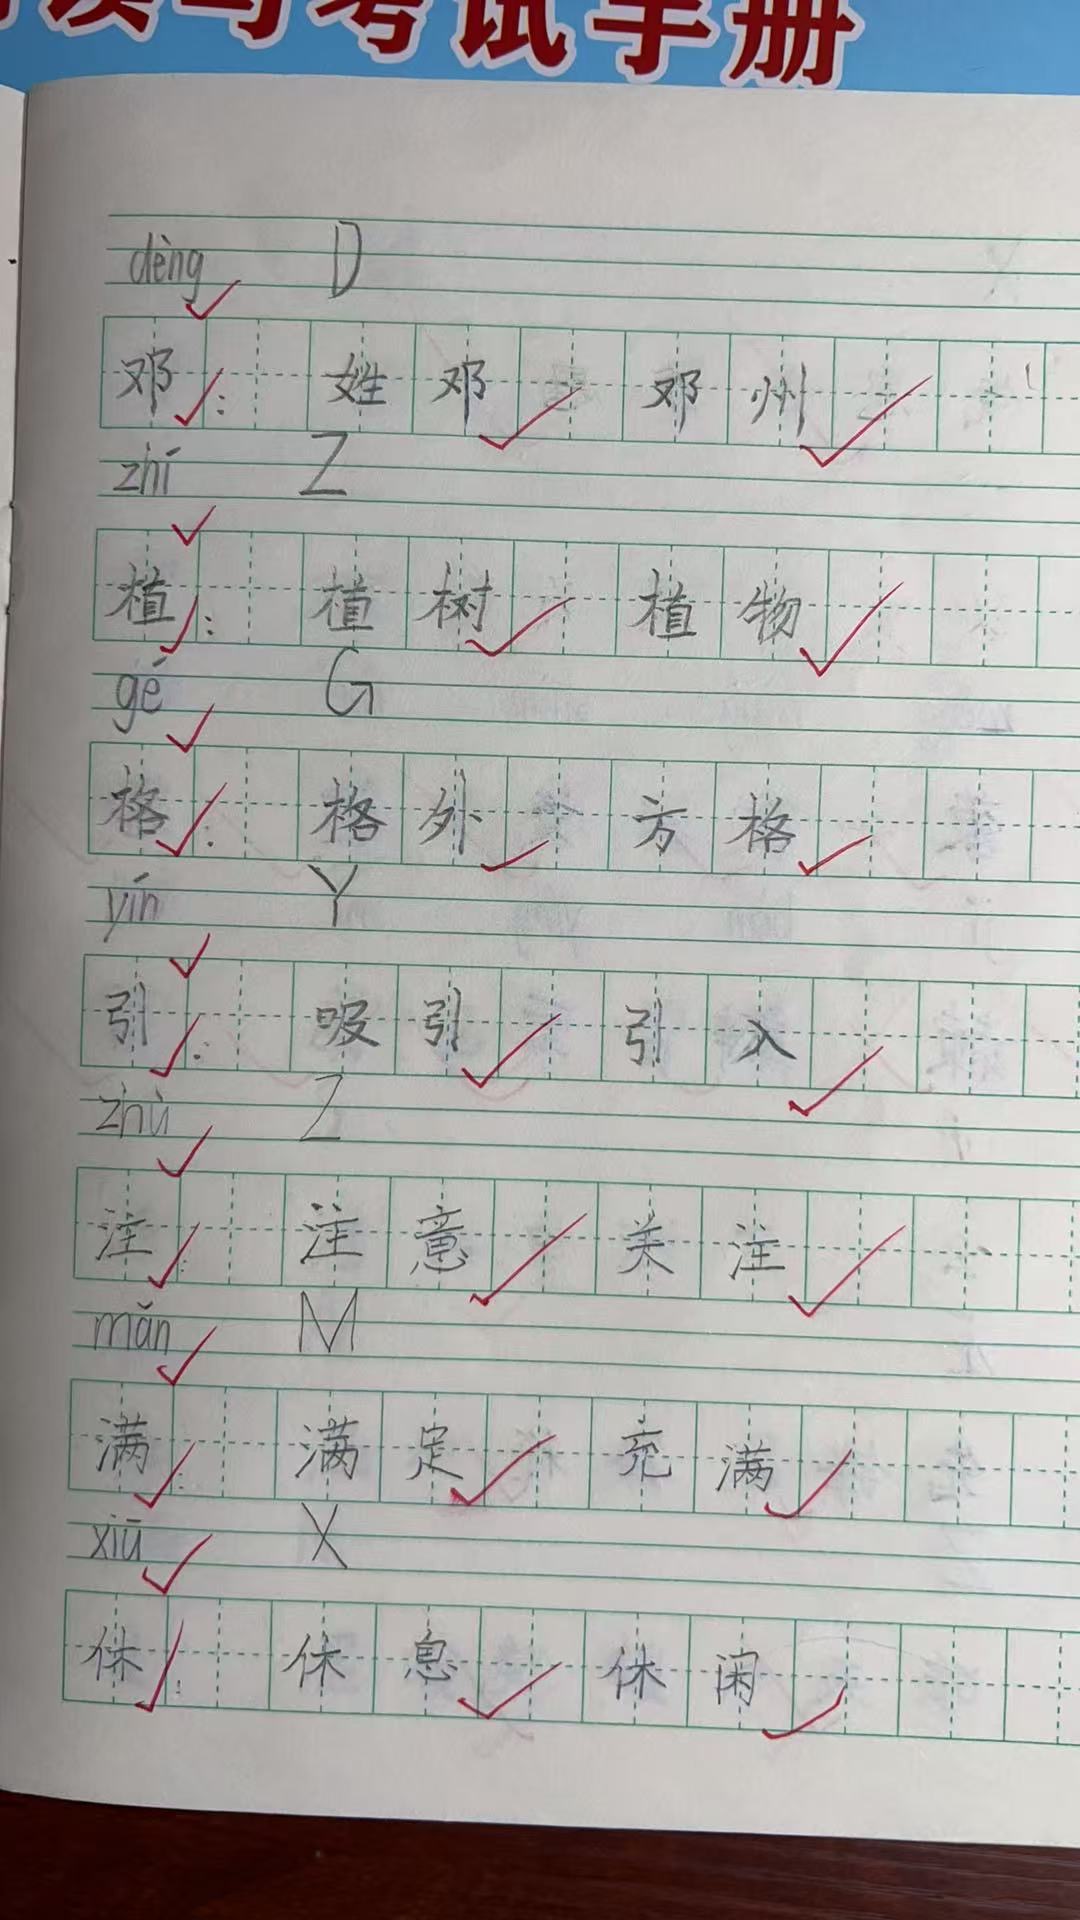 读与考试手册
dèng D
邓: 姓邓 邓州
zhí Z
植: 植树 植物
gé G
格: 格外 方格
yǐn Y
引: 吸引 引入
zhù Z
注: 注意 关注
mǎn M
满: 满足 充满
xiū X
休: 休息 休闲